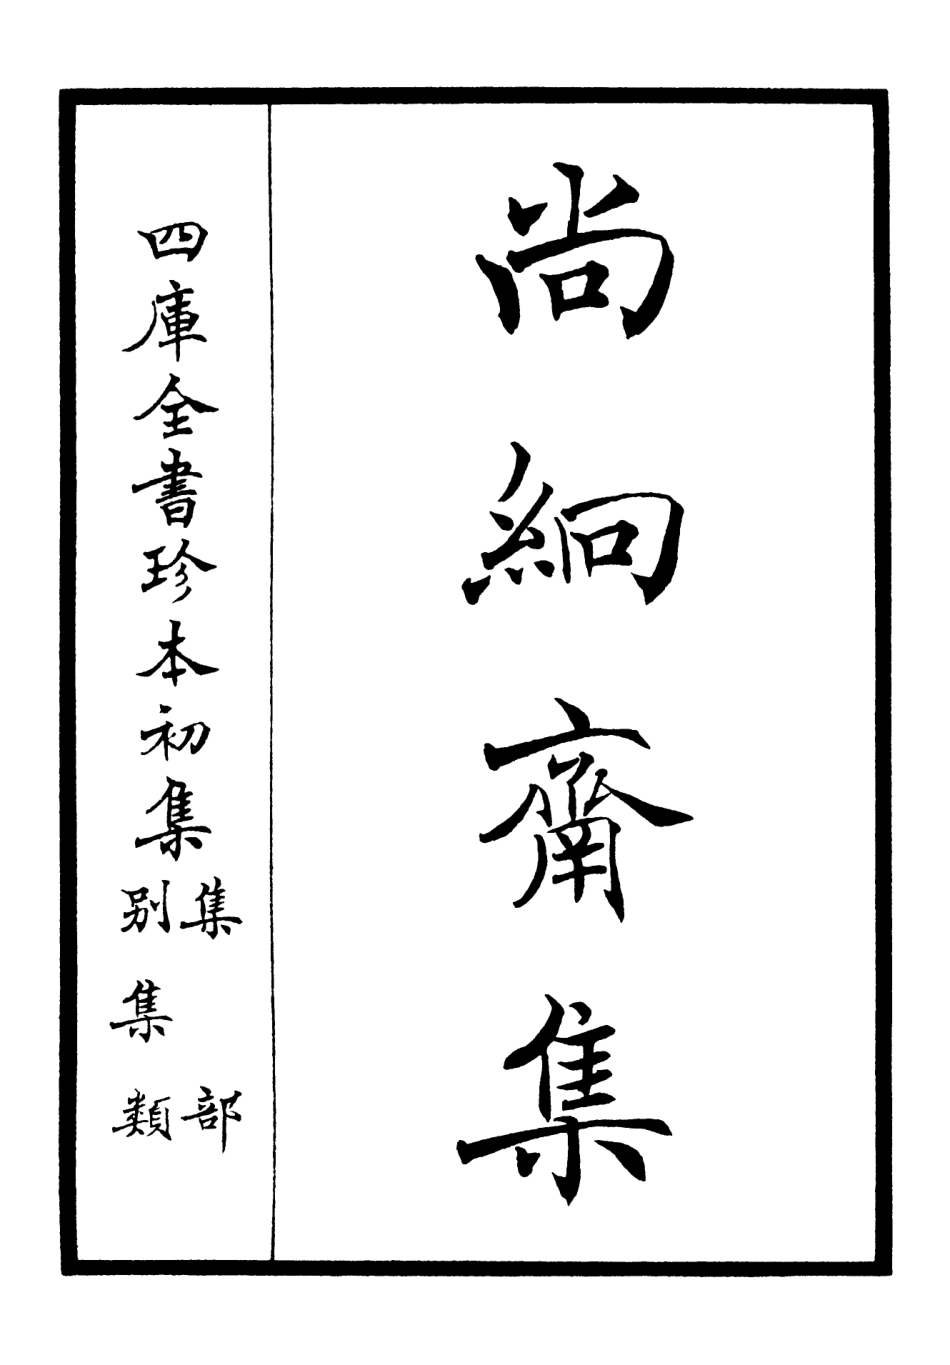 尚絅齋集
四庫全書珍本初集
集部
別集類